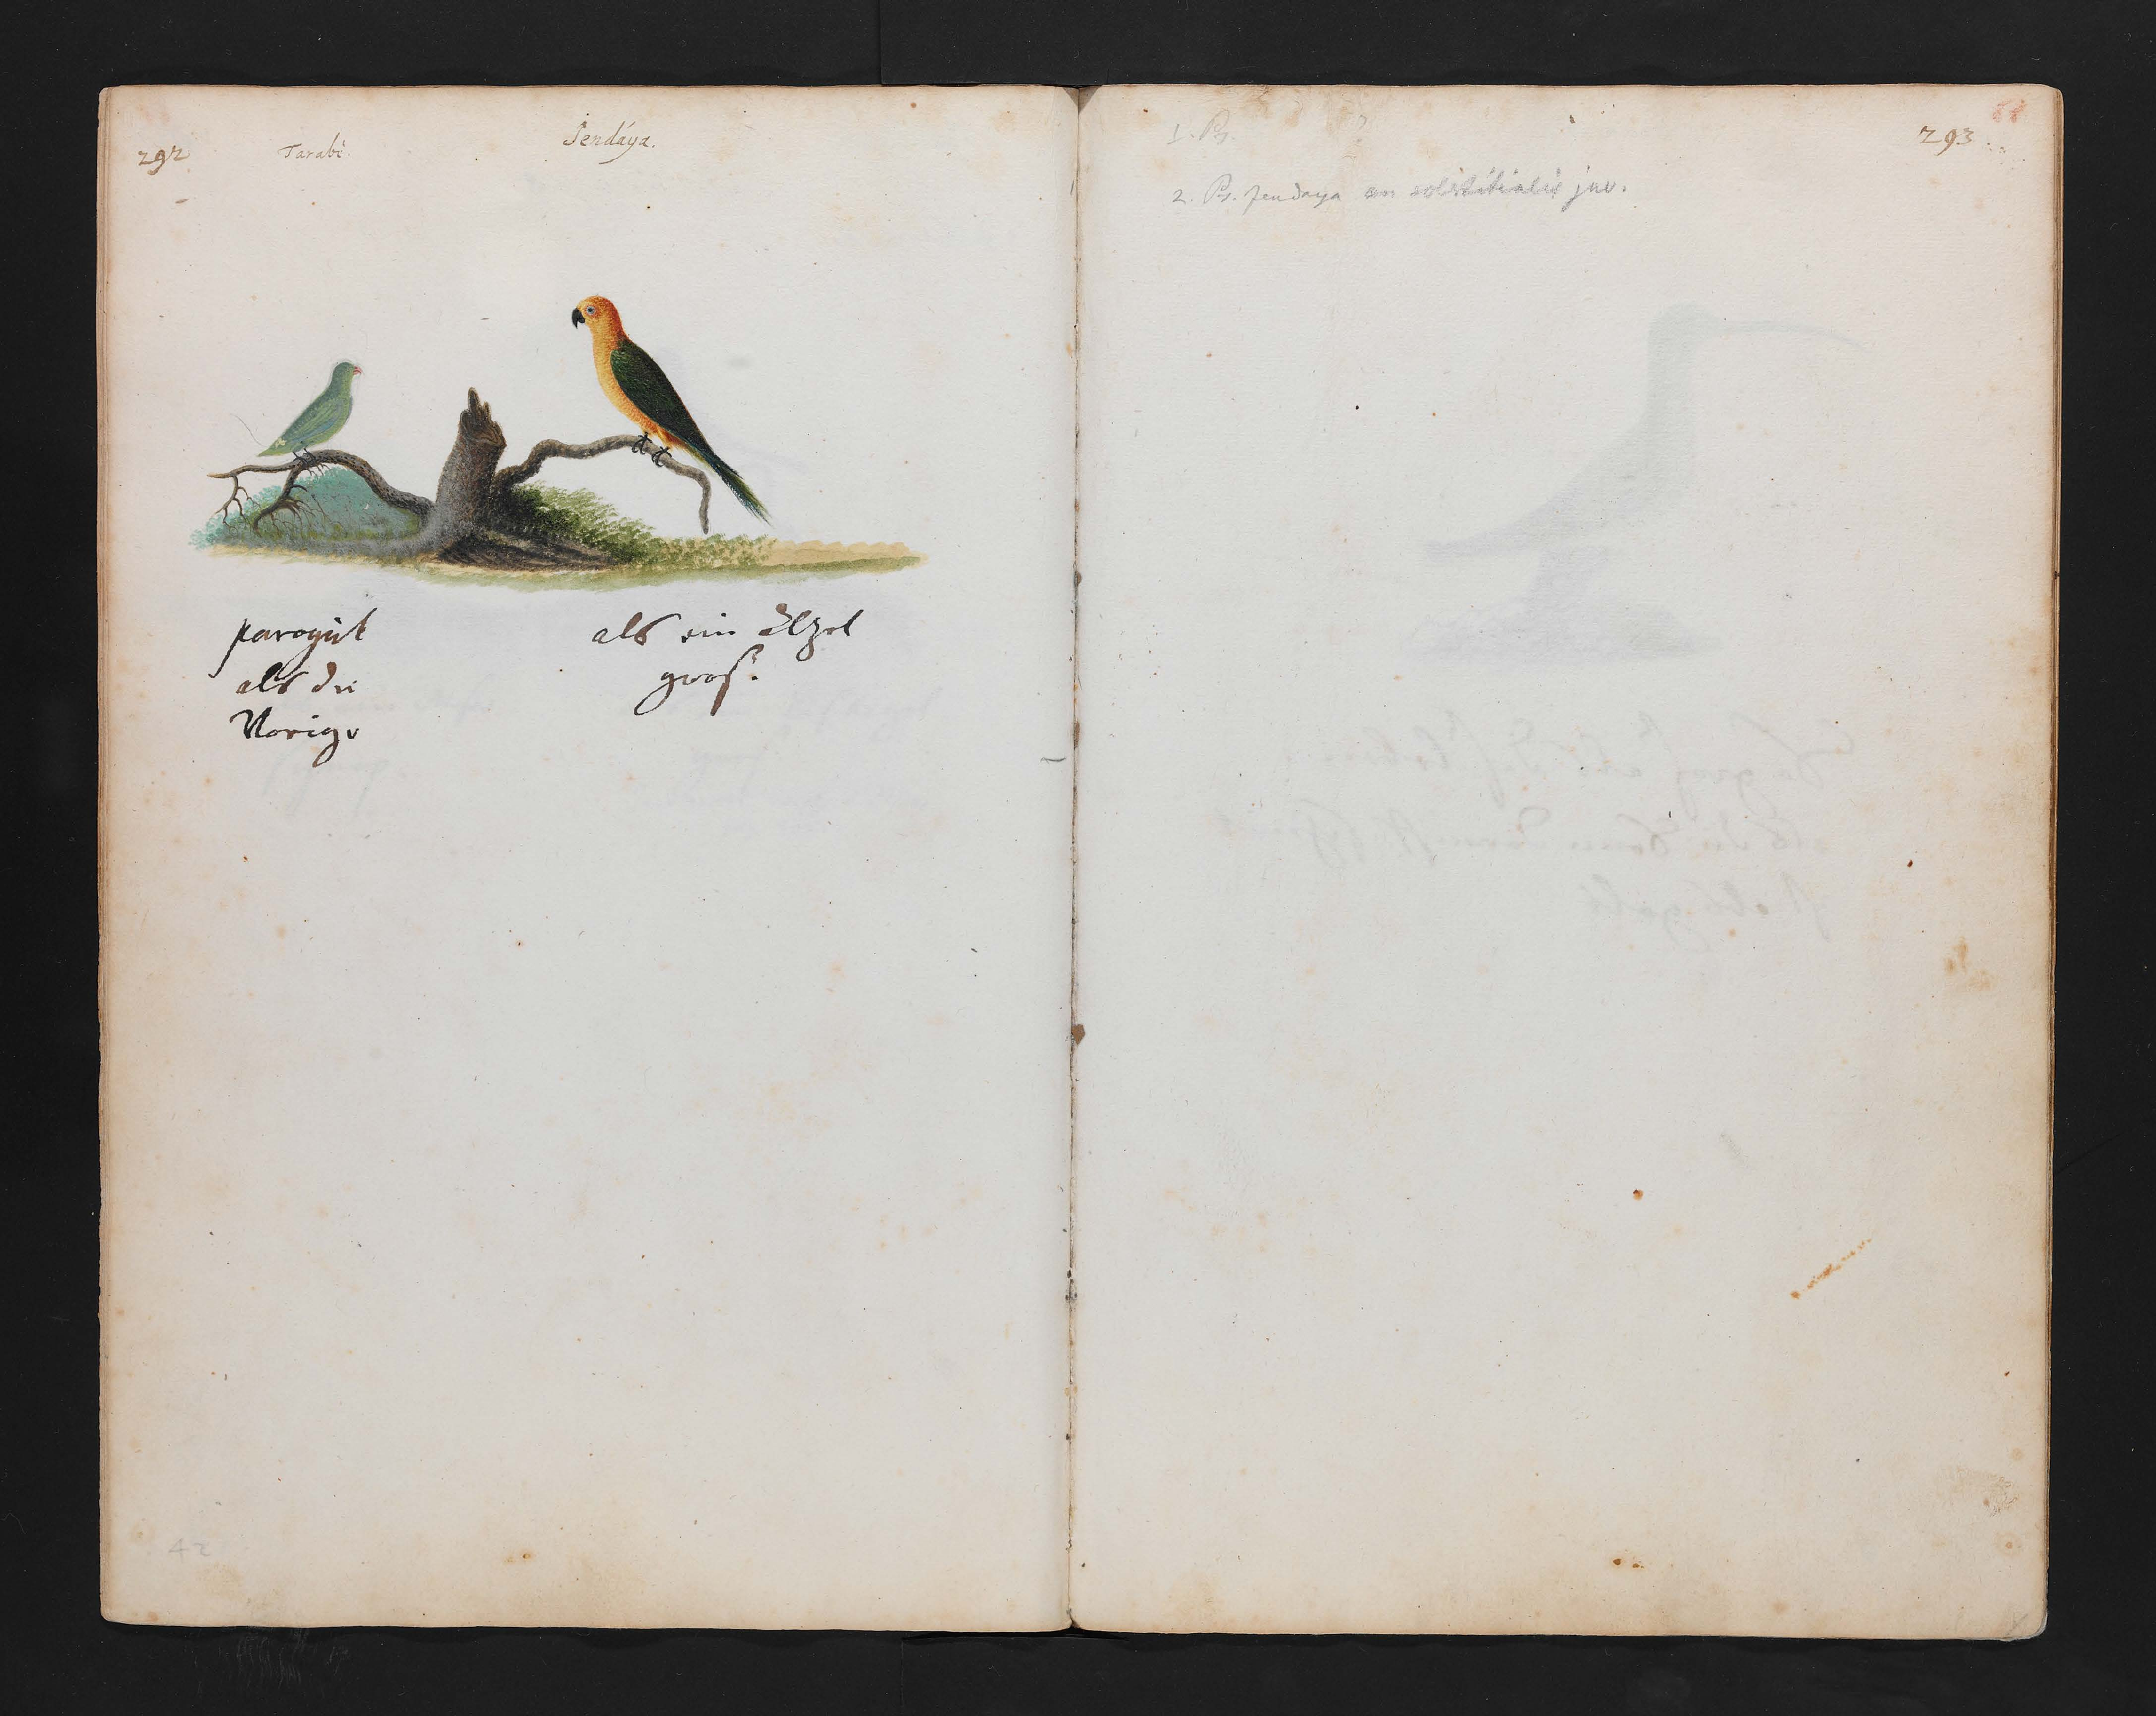 292
Tarabé.
Jendáya.
parogüt
als die
Vorige
als ein Elzel
gros.
42
1. Ps. ?
293
2. Ps. jendaya an solstitialis juv.